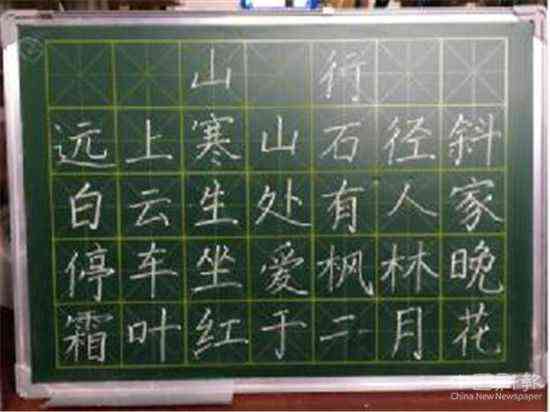 山行
远上寒山石径斜
白云生处有人家
停车坐爱枫林晚
霜叶红于二月花
China New Newspaper